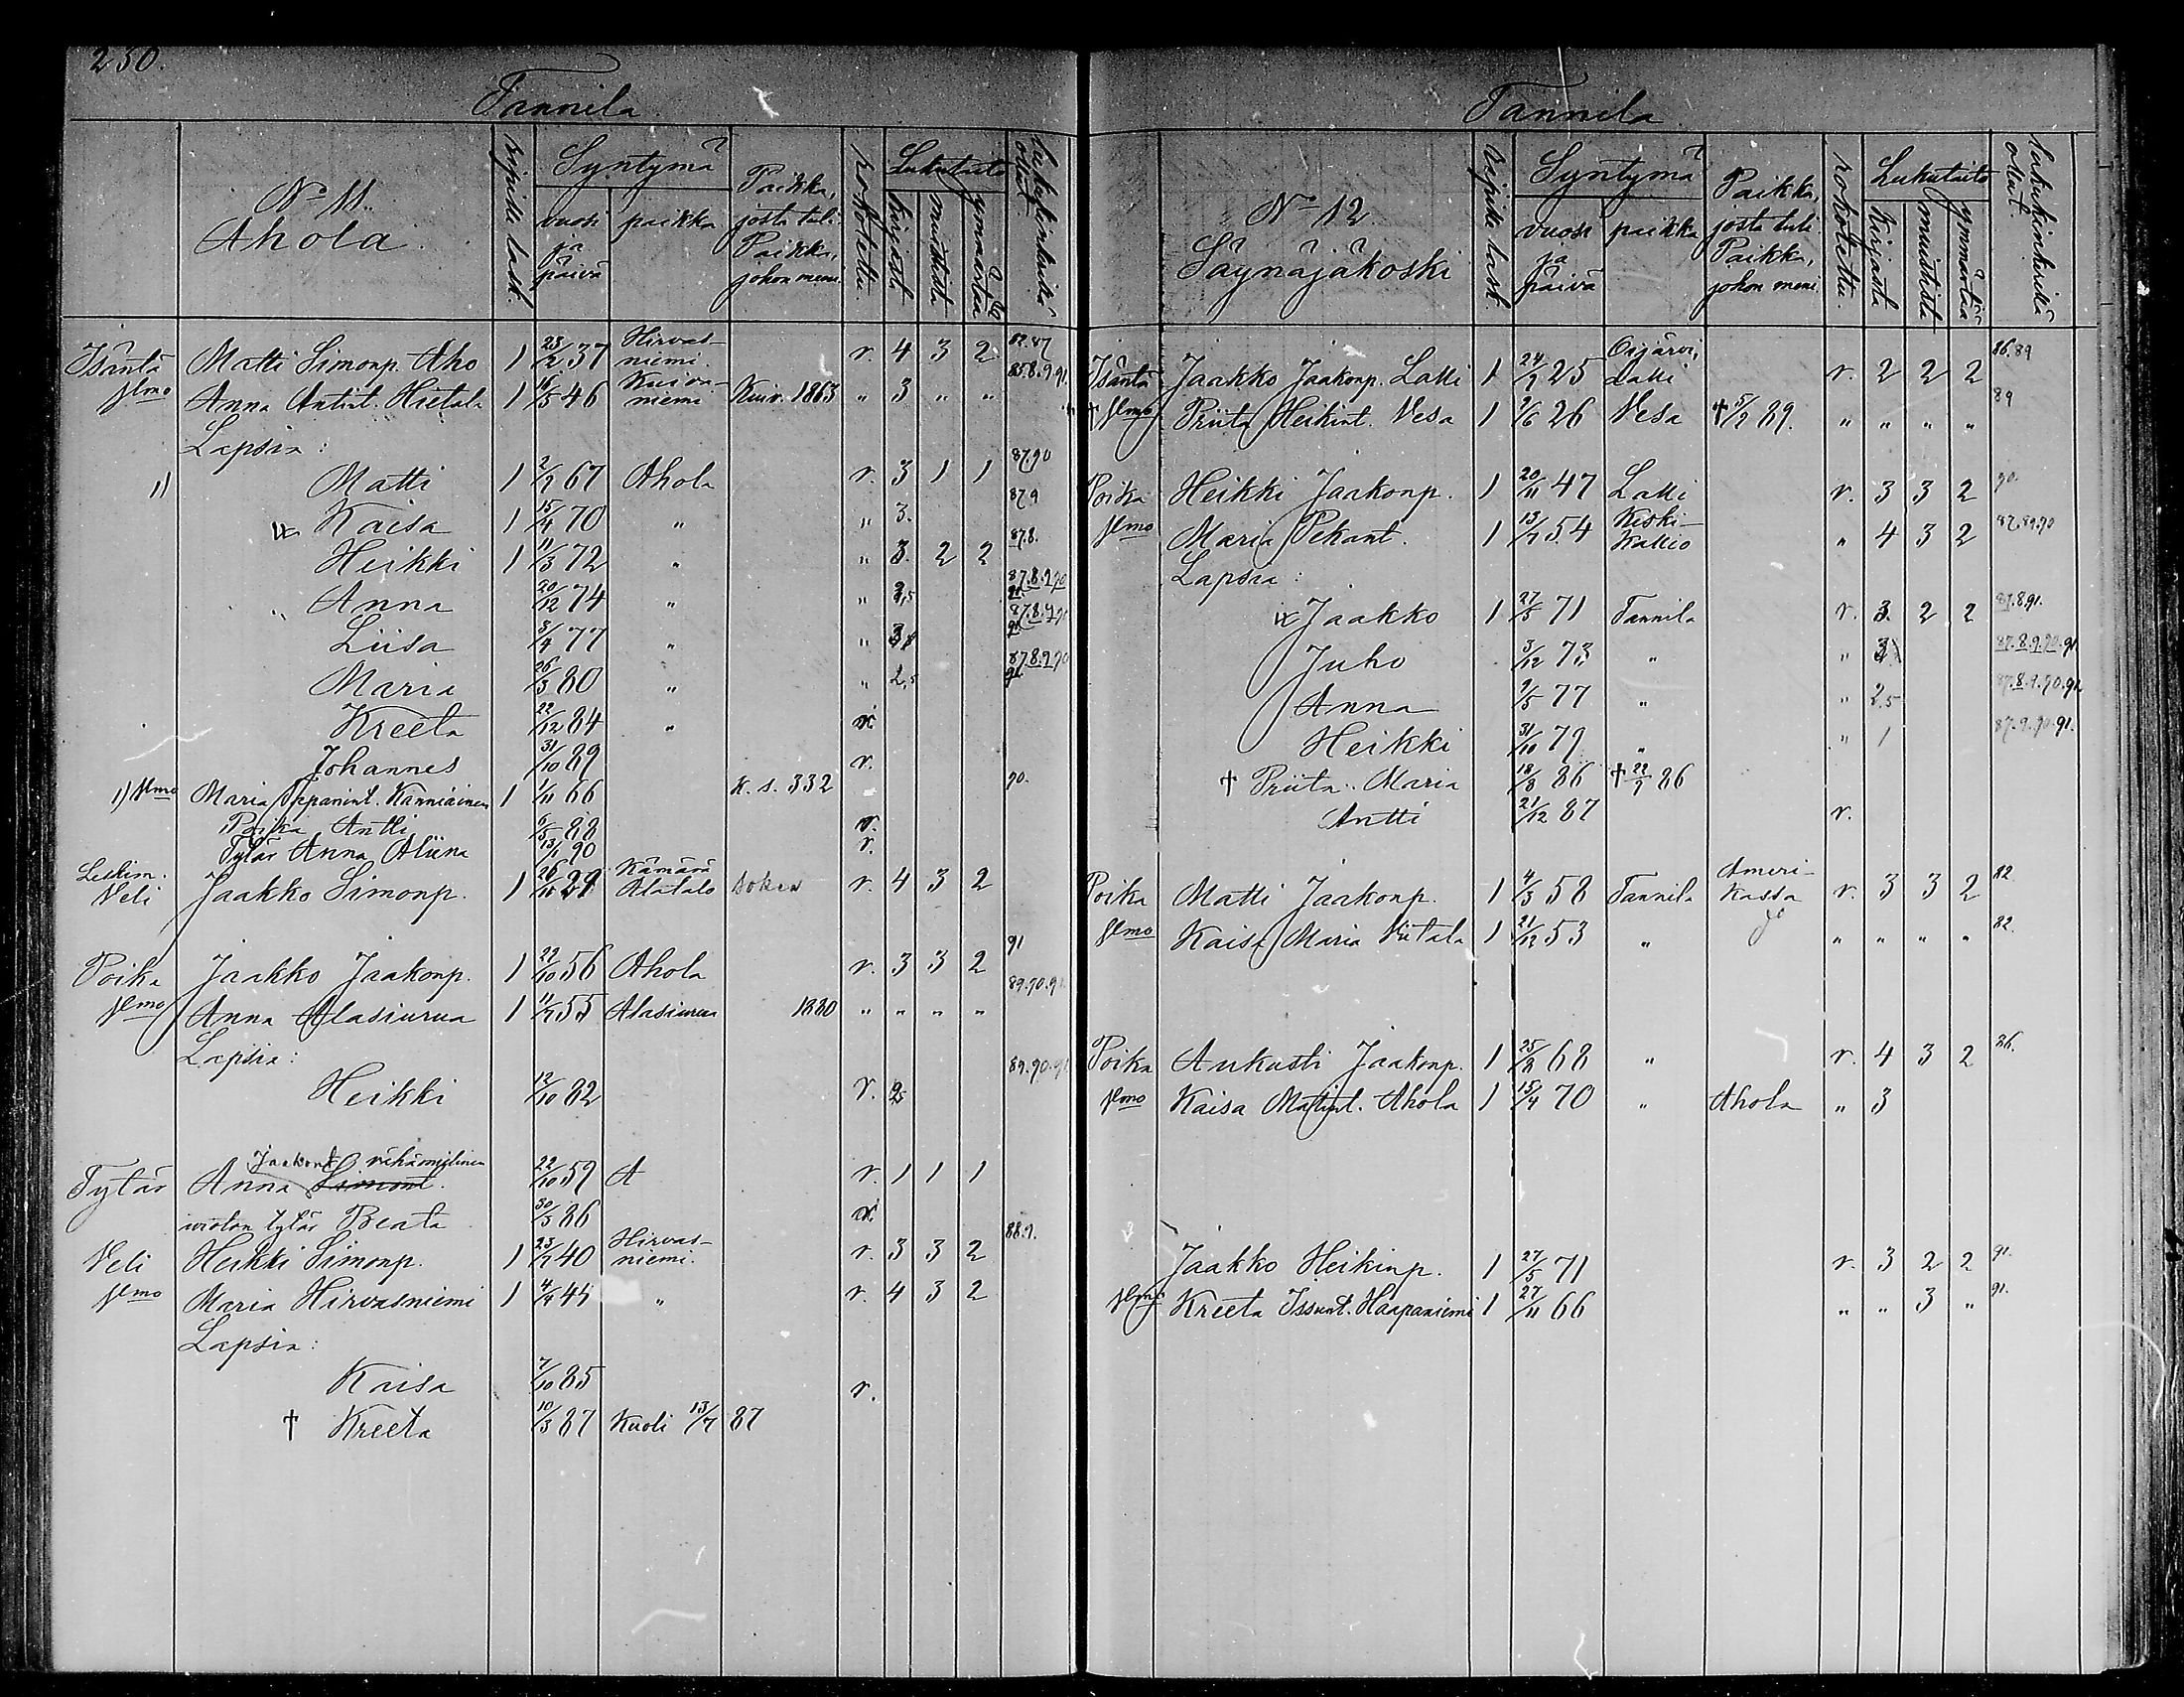 230.
Tannila
No 11.
Ahola.
ripille lask.
Syntymä
vuosi ja päivä
paikka
Paikka, josta tuli.
Paikka, johon meni.
rokotettu.
Lukutaito
kirjasta
muistista
ymmärtää
lukukinkerillä ollut.
Isäntä Matti Simonp. Aho 1 23/2 37 Hirvasniemi. r. 4 3 2 87
Anna Antint. Hietala 1 16/5 46 Kuivaniemi Kuiv. 1863 " 3 " "
Lapsia:
1) Matti 1 2/7 67 Ahola r. 3 1 1 87.90
Kaisa 1 15/4 70 " " 3. 87.9
Heikki 1 11/3 72 " " 3. 2 2 87.8.
Anna 20/12 74 " " 87.8.9.90
Liisa 3/4 77 " " 87.8.9.90
Maria 26/3 80 " " 2,5 87.8.9.90
Kreeta 22/12 84 "
Johannes 31/10 89 r.
1) Maria Kanniainen 1 1/11 66 K. s. 332 90.
Poika Antti 6/5 88 r.
Tytär Anna Aliina 13/1 90 r.
Leskim. Veli Jaakko Simonp. 1 29 Kämärä Alatalo sokea r. 4 3 2
Poika Jaakko Jaakonp. 1 22/10 56 Ahola r. 3 3 2 91
Anna Alasiurua 1 11/7 55 Alasiurua 1880 " " " " 89.90.91
Lapsia:
Heikki 12/10 82 r. 89.90.91
Tytär Anna Jaakont. vähämielinen 22/10 59 A r. 1 1 1
tytär Beata 30/5 86
Veli Heikki Simonp. 1 23/7 40 Hirvasniemi. r. 3 3 2 88.9.
Maria Hirvasniemi 1 4/9 45 " r. 4 3 2
Lapsia:
Kaisa 7/10 85 r.
† Kreeta 10/3 87 Kuoli 13/7 87
Tannila
No 12
Säynäjäkoski
ripille lask.
Syntymä
vuosi ja päivä
paikka
Paikka, josta tuli.
Paikka, johon meni.
rokotettu.
Lukutaito
kirjasta
muistista
ymmärtää
lukukinkerillä ollut.
Isäntä Jaakko Jaakonp. Lalli 1 24/7 25 Oijärvi, Lalli r. 2 2 2 86.89
† Priita Heikint. Vesa 1 2/6 26 Vesa † 5/2 89. " " " " 89
Poika Heikki Jaakonp. 1 20/11 47 Lalli r. 3 3 2 90.
Maria Pekant. 1 13/7 54 Keski-Kallio " 4 3 2 87.89.90
Lapsia:
Jaakko 1 27/5 71 Tannila r. 3. 2 2 87.8.91.
Juho 3/12 73 " " 87.8.9.90.91
Anna 9/5 77 " " 2,5 87.8.9.90.91
Heikki 31/10 79 " " 1 87.9.90.91.
† Priita Maria 18/8 86 † 22/9 86
Antti 21/12 87 r.
Poika Matti Jaakonp. 1 4/3 58 Tannila Amerikassa r. 3 3 2 82
Kaisa Maria Viitala 1 21/12 53 " " " " " 82.
Poika Aukusti Jaakonp. 1 25/8 68 " r. 4 3 2 86.
Kaisa Matint. Ahola 1 15/4 70 " Ahola " 3
Jaakko Heikinp. 1 27/5 71 r. 3 2 2 91.
Kreeta Haapaniemi 1 27/11 66 " " 3 " 91.